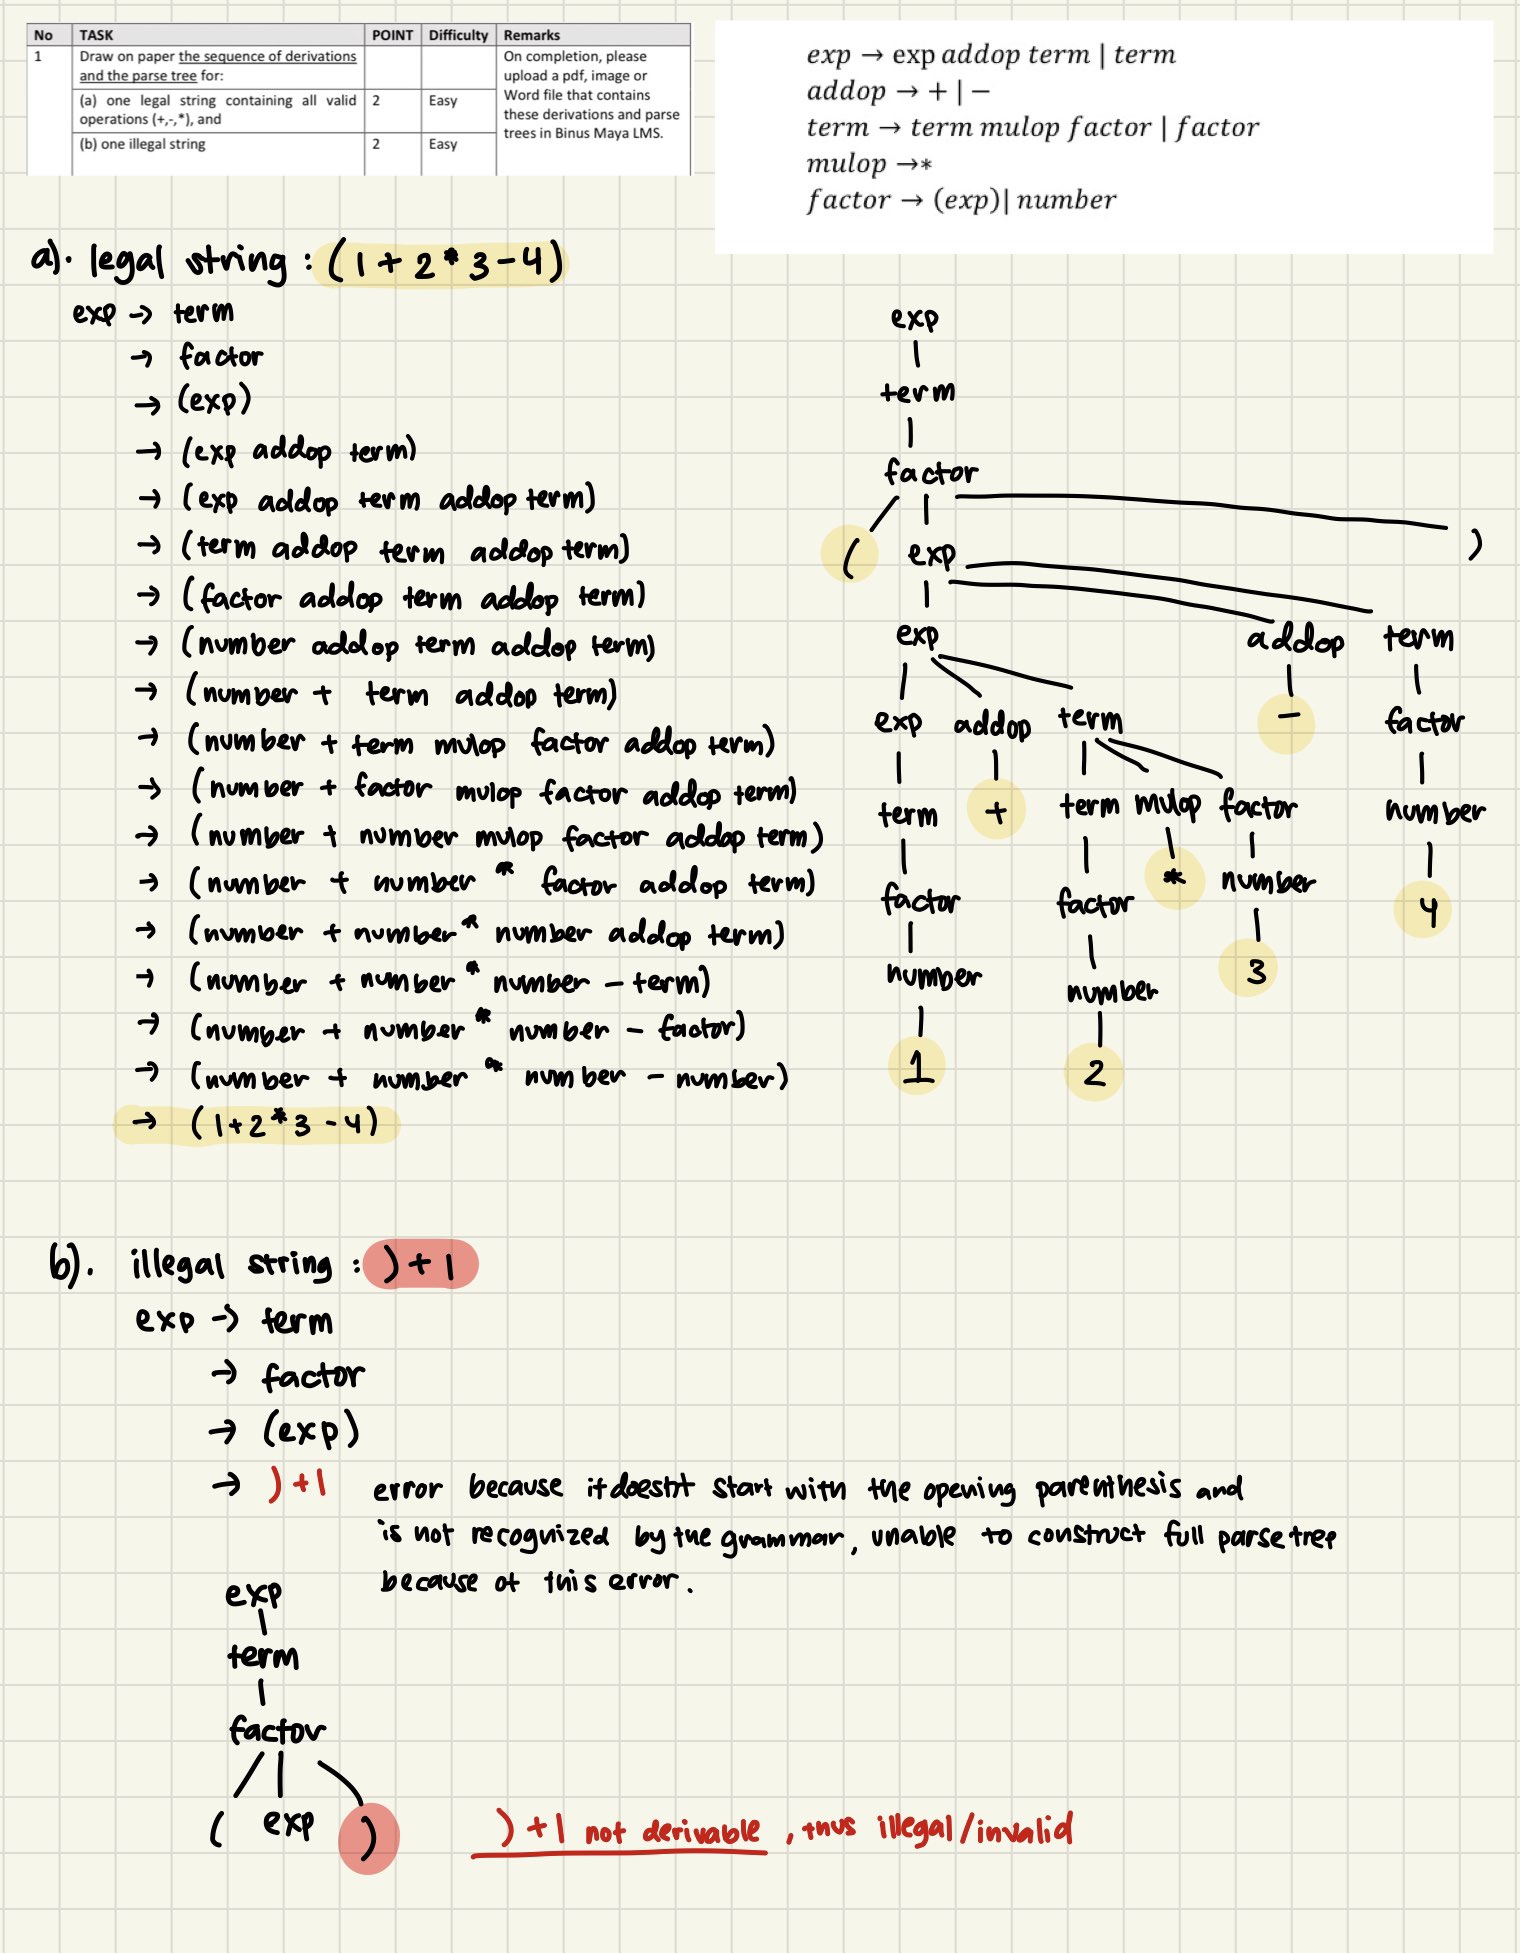 No TASK POINT Difficulty Remarks
1 Draw on paper the sequence of derivations and the parse tree for:
(a) one legal string containing all valid operations (+,-,*), and 2 Easy
(b) one illegal string 2 Easy
On completion, please
upload a pdf, image or
Word file that contains
these derivations and parse
trees in Binus Maya LMS.
exp → exp addop term | term
addop → + | −
term → term mulop factor | factor
mulop →*
factor → (exp)| number
a). legal string : (1 + 2 * 3 - 4)
exp → term
→ factor
→ (exp)
→ (exp addop term)
→ (exp addop term addop term)
→ (term addop term addop term)
→ (factor addop term addop term)
→ (number addop term addop term)
→ (number + term addop term)
→ (number + term mulop factor addop term)
→ (number + factor mulop factor addop term)
→ (number + number mulop factor addop term)
→ (number + number * factor addop term)
→ (number + number * number addop term)
→ (number + number * number - term)
→ (number + number * number - factor)
→ (number + number * number - number)
→ (1+2*3-4)
exp
term
factor
( exp )
exp addop term
exp addop term - factor
term + term mulop factor number
factor factor * number 4
number number 3
1 2
b). illegal string : )+1
exp → term
→ factor
→ (exp)
→ )+1 error because it doesn't start with the opening parenthesis and
is not recognized by the grammar, unable to construct full parse tree
because of this error.
exp
term
factor
( exp )
)+1 not derivable, thus illegal/invalid